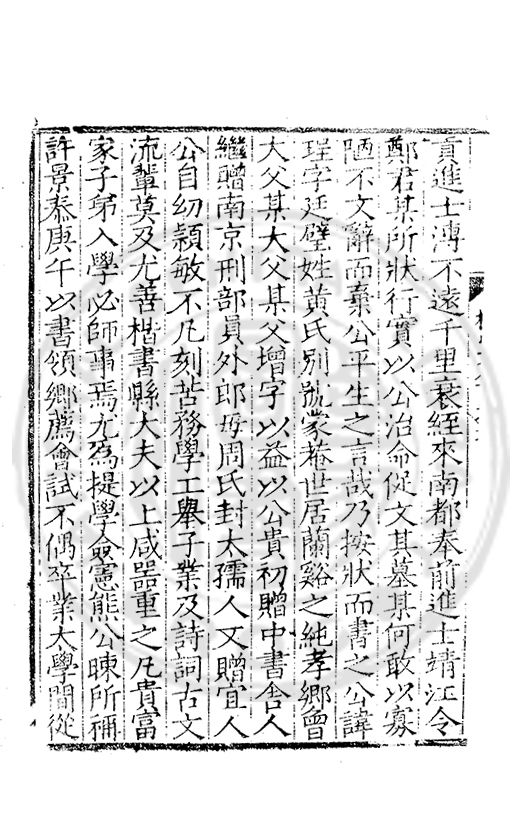 貢進士溥不遠千里衰絰來南都奉前進士靖江令
鄭君某所狀行實以公治命促文其墓某何敢以寡
陋不文辭而棄公平生之言哉乃按狀而書之公諱
珵字廷璧姓黄氏別號蒙菴世居蘭谿之純孝鄉曾
大父某大父某父增字以益以公貴初贈中書舍人
繼贈南京刑部員外郎母周氏封太孺人又贈宜人
公自幼穎敏不凡刻苦務學工舉子業及詩詞古文
流輩莫及尤善楷書縣大夫以上咸器重之凡貴富
家子弟入學必師事焉尤為提學僉憲熊公暕所稱
許景泰庚午以書領鄉薦會試不偶卒業太學間從